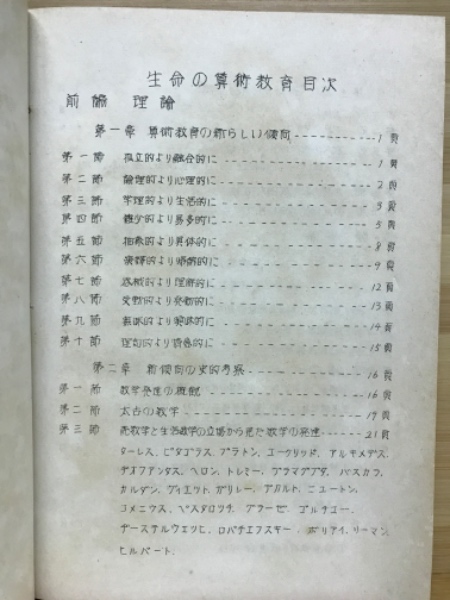 生命の算術教育目次
前編 理論
第一章 算術教育の新らしい傾向 1頁
第一節 孤立的より融合的に 1頁
第二節 論理的より心理的に 2頁
第三節 学理的より生活的に 3頁
第四節 より 的に 5頁
第五節 抽象的より具体的に 8頁
第六節 演繹的より帰納的に 9頁
第七節 器械的より理解的に 12頁
第八節 受動的より発動的に 13頁
第九節 より 的に 14頁
第十節 より 的に 15頁
第二章 新傾向の史的考察 16頁
第一節 数学発達の概観 16頁
第二節 太古の数学 19頁
第三節 純数学と生活数学の立場から見た数学の発達 21頁
ターレス、ピタゴラス、プラトン、ユークリッド、アルキメデス、
ヂオファンタス、ヘロン、トレミー、ブラマグプタ、バスカラ、
カルダン、ヴィエット、ガリレー、デカルト、ニュートン、
コメニウス、ペスタロッチ、
ヂーステルウェッヒ、ロバチェフスキー、ボリアイ、リーマン、
ヒルバート、